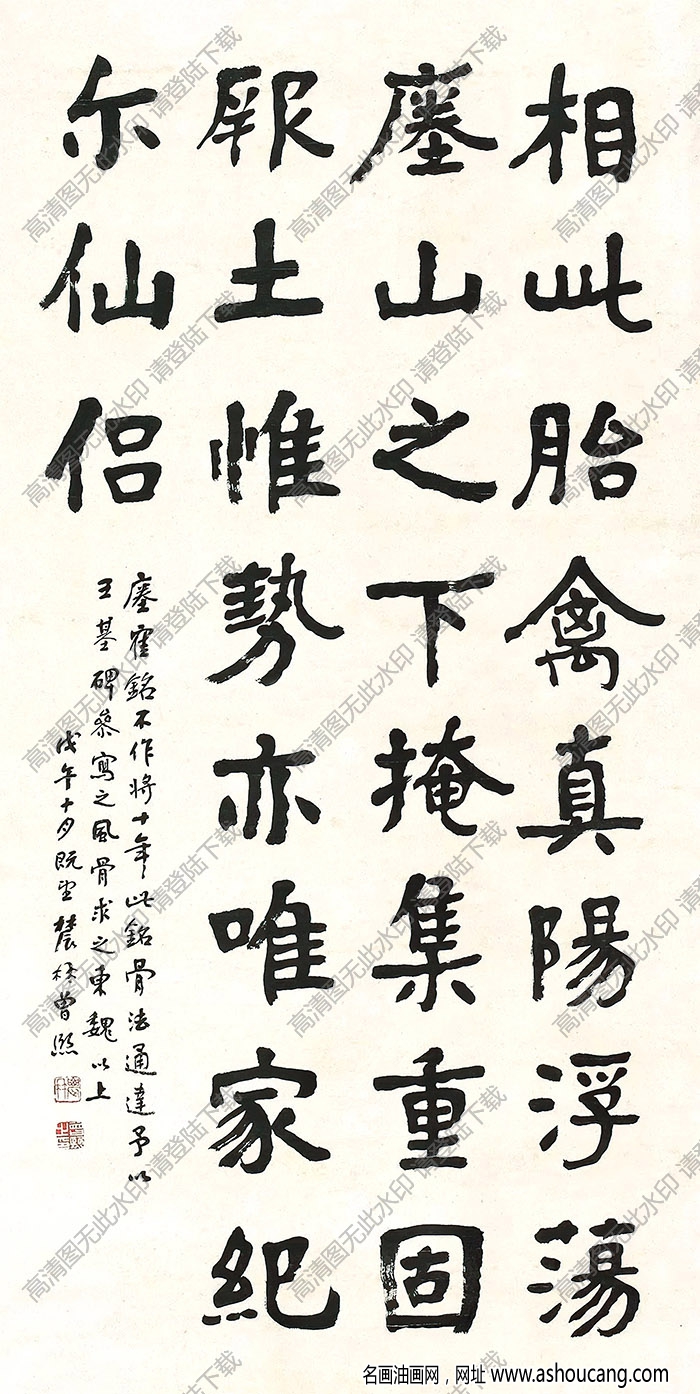 相此胎禽真陽浮蕩
瘞山之下掩集重固
厥土惟勢亦唯家紀
尓仙侶
瘞隺銘不作將十年此銘骨法通達予以
王基碑參寫之風骨求之東魏以上
戊午十月既望農髯曾熙
高清图无此水印 请登陆下载
名画油画网，网址 www.ashoucang.com